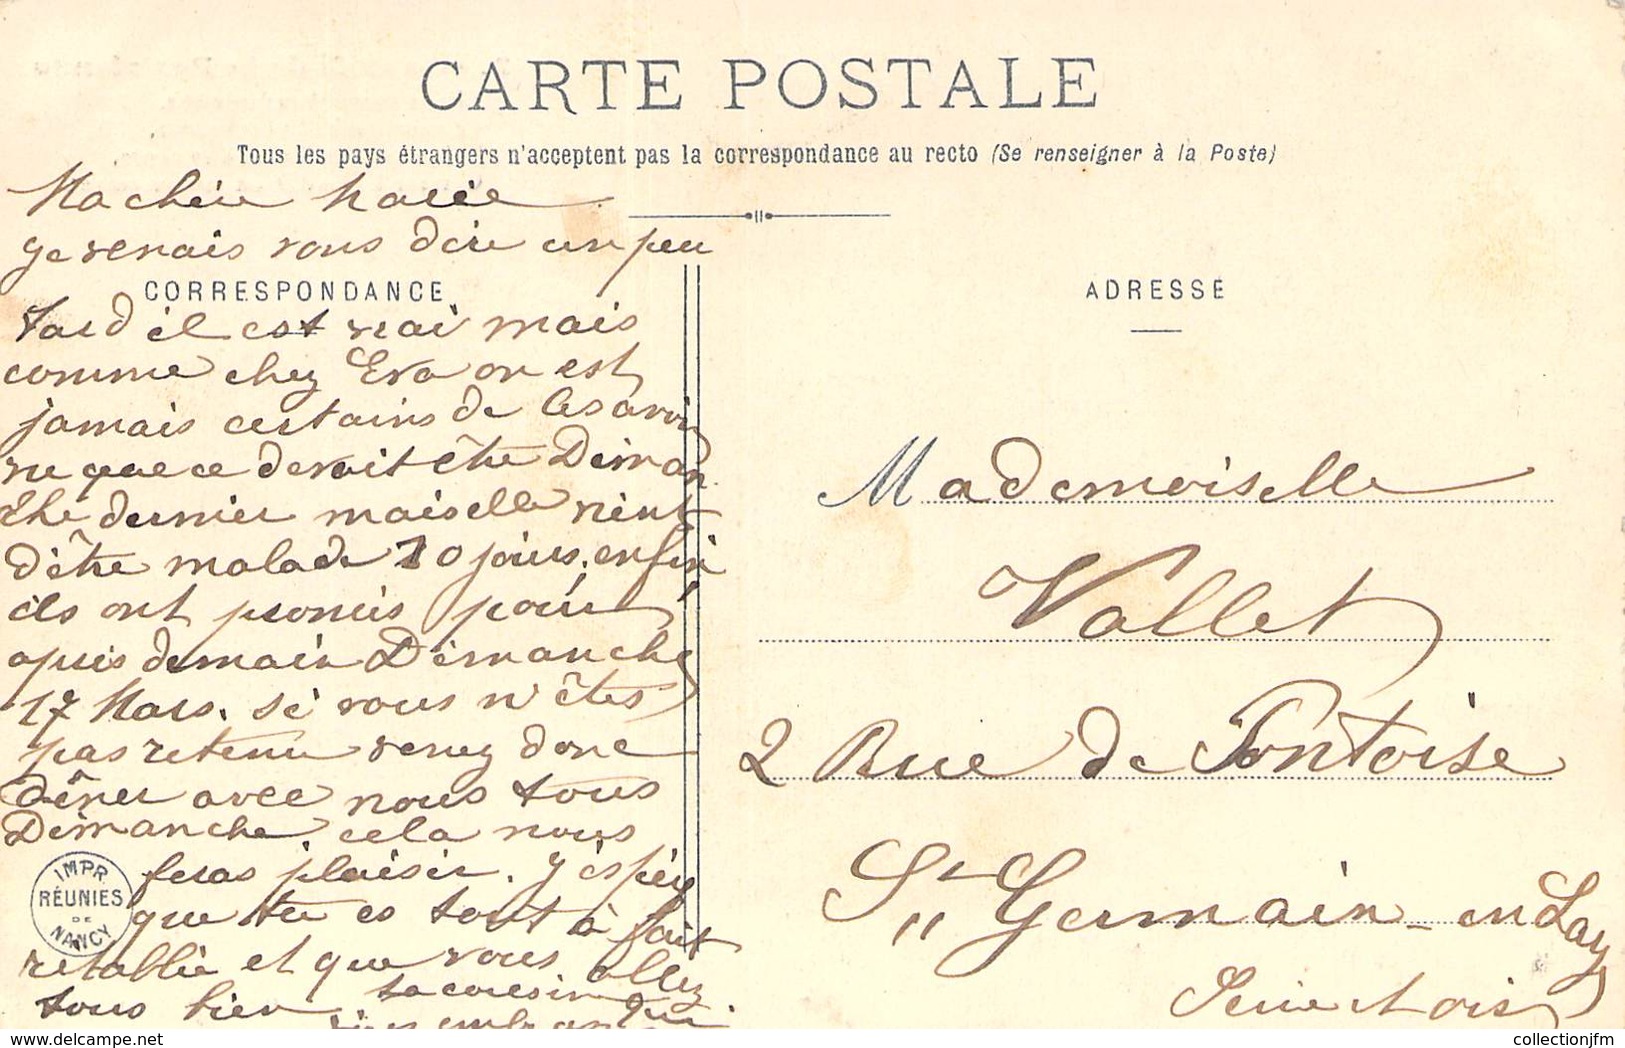 CARTE POSTALE
Tous les pays étrangers n'acceptent pas la correspondance au recto (Se renseigner à la Poste)
Ma chère Marie
je venais vous dire un peu
CORRESPONDANCE
tard il est vrai mais
comme chez Eva on est
jamais certains de les avoir
ne que ce devait être Diman
che dernier mais elle vient
d'être malade 10 jours, enfin
ils ont promis pour
apuis demain Dimanche
17 Mars. si vous n'êtes
pas retenu venez donc
dîner avec nous tous
Dimanche cela nous
feras plaisir. j'éspère
que tu es tout à fait
retablie et que vous allez
tous bien ta cousine qui
ADRESSE
Mademoiselle
Vallet
2 Rue de Pontoise
St Germain-en Lay
Seine et Oise
IMPR. RÉUNIES DE NANCY
collectionjfm